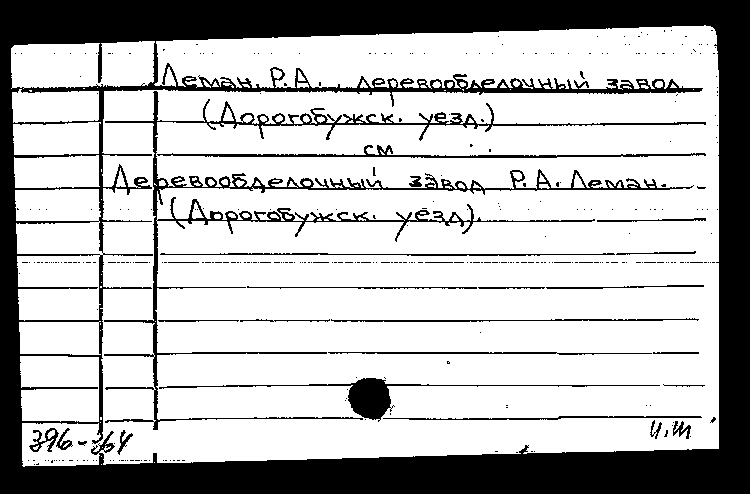 Леман, Р.А., деревообделочный завод
(Дорогобужск. уезд.)
см
Деревообделочный завод Р.А. Леман.
(Дорогобужск. уезд).
396-364
И.Ш